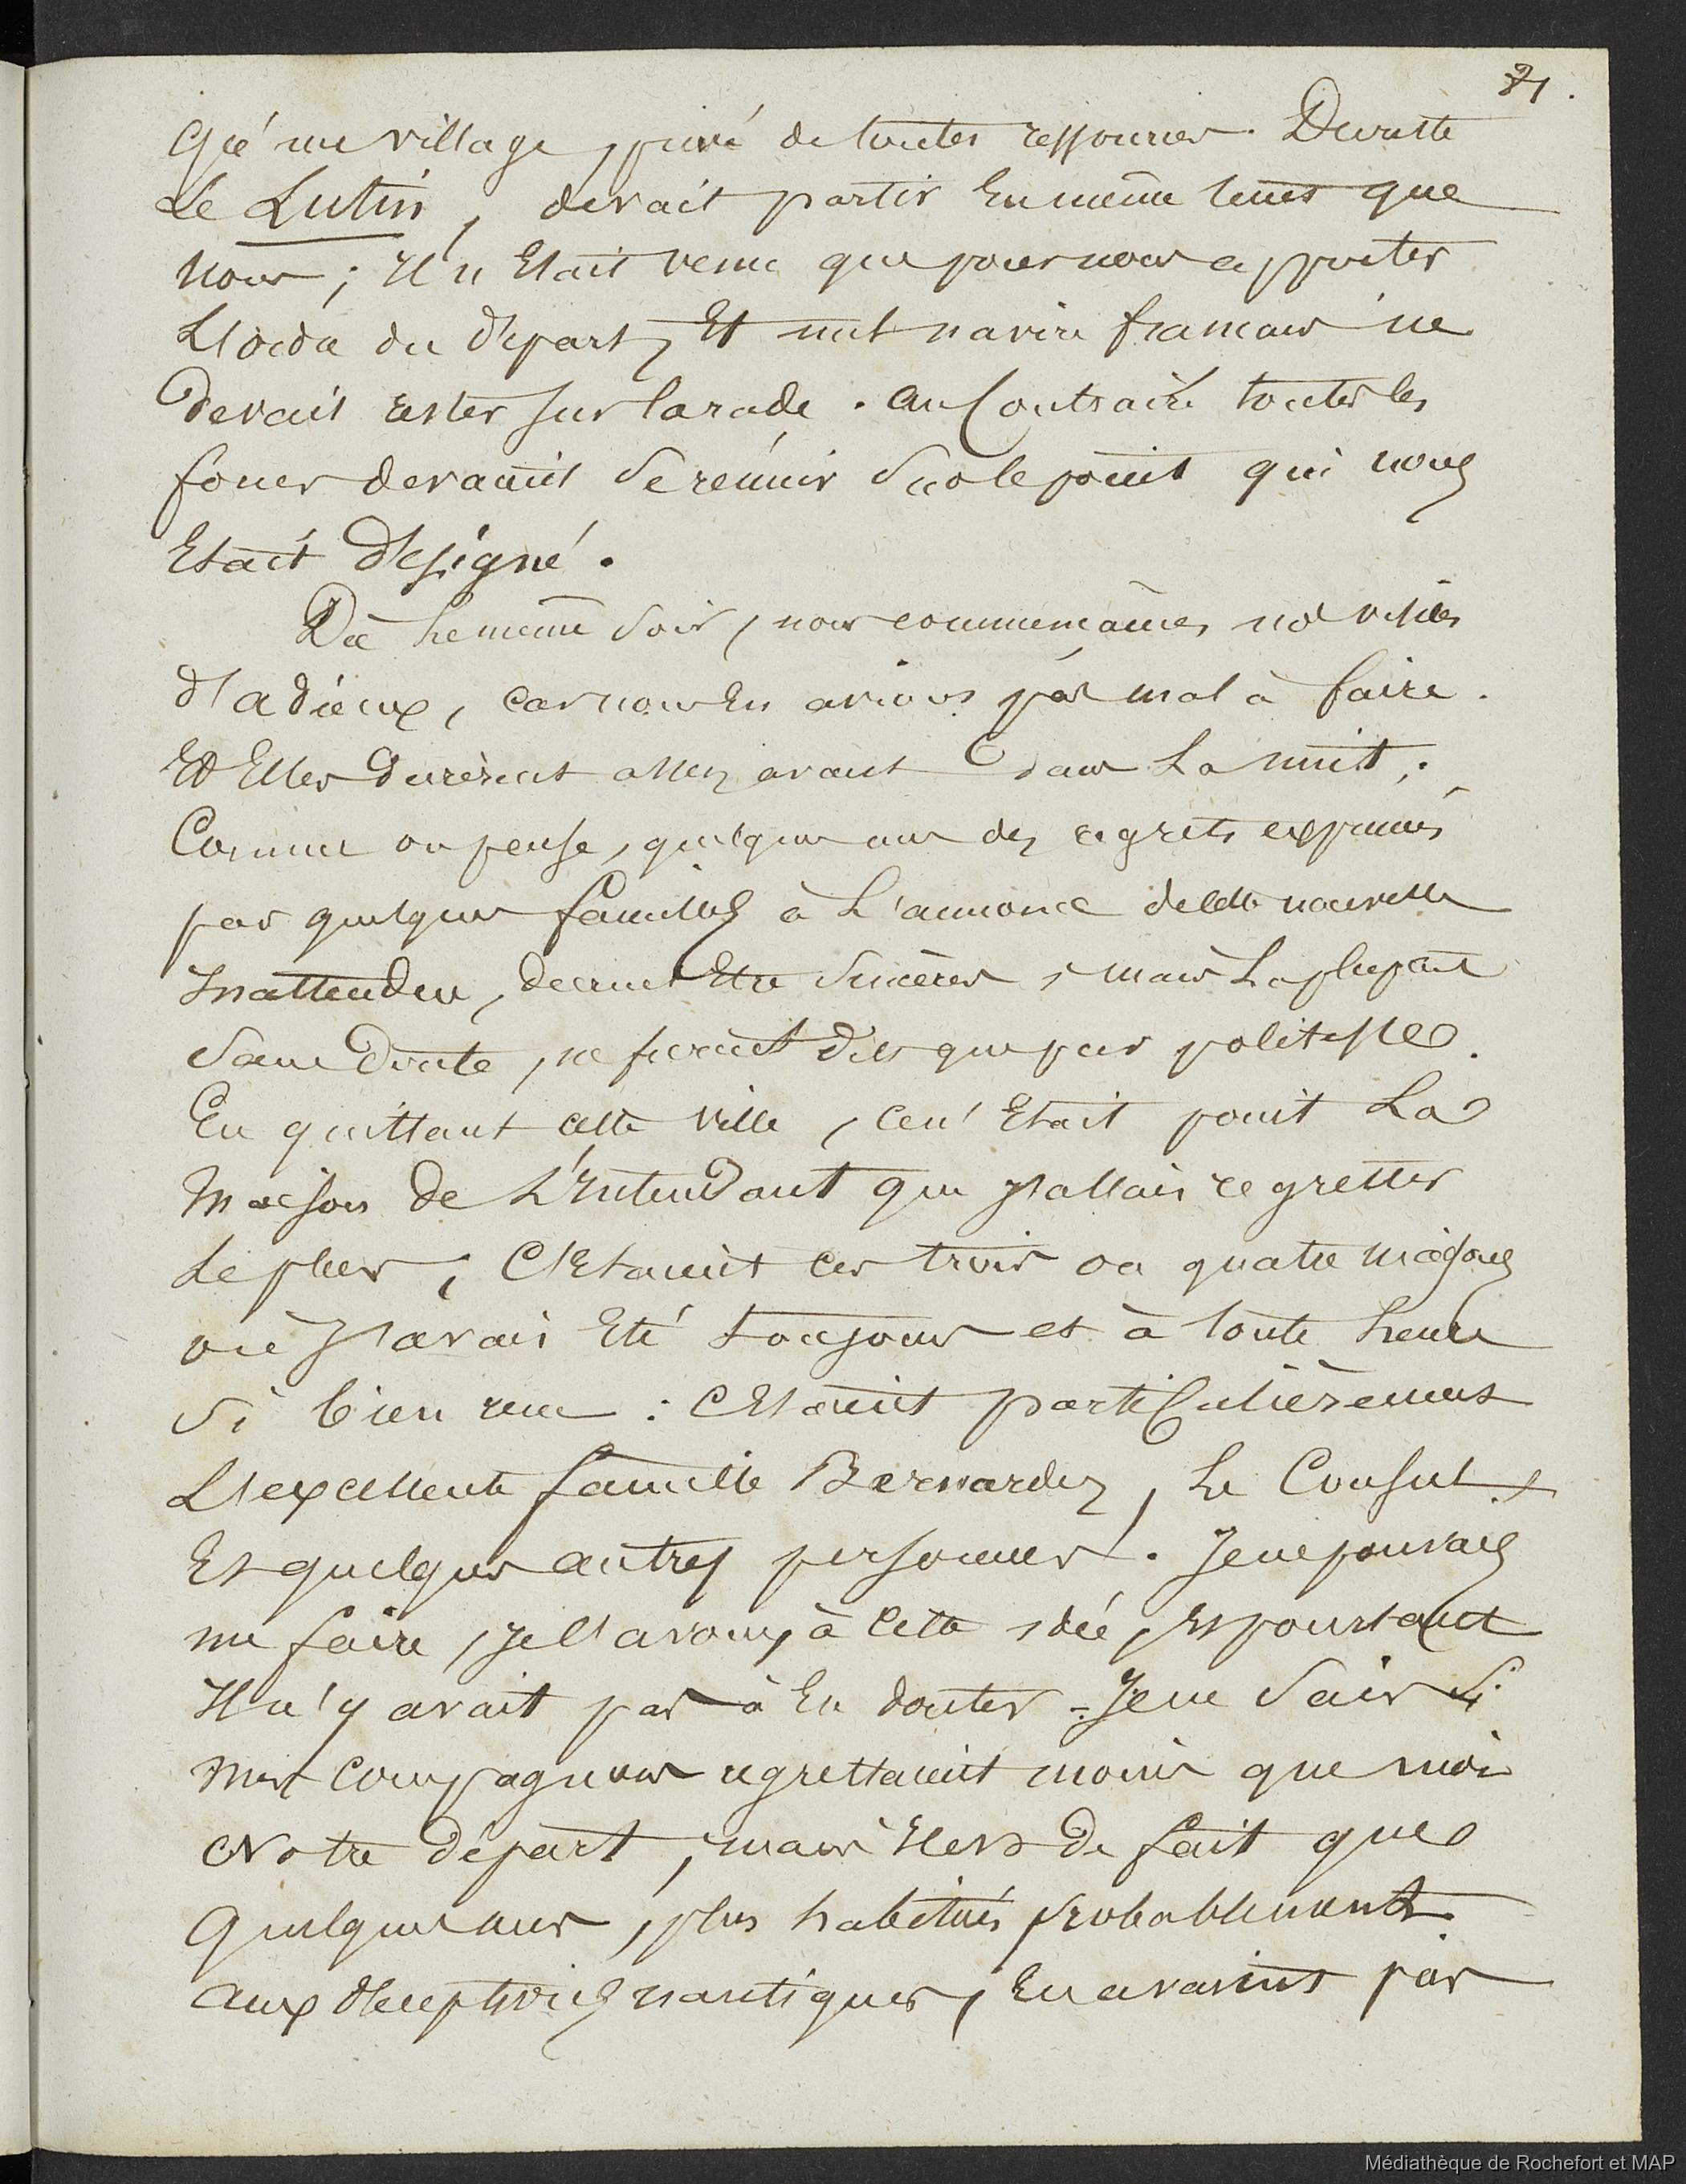 21.
qu'un village, privé de toutes ressources. Du reste
Le Lutin, devait partir En même tems que
nous ; Il n'Etait venu que pour nous apporter
L'ordre du départ, Et nul navire francais ne
devait rester sur la rade. au Contraire toutes les
forces devaient Se réunir Sur le point qui nous
Etait désigné.
Dès Le même Soir, nous commençâmes nos visites
d'adieux, car nous En avions pas mal à faire.
Et Elles durèrent assez avant dans La nuit ;
Comme on pense, quelques uns des regrets exprimés
par quelques familles à L'annonce de cette nouvelle
Inattendue, durent Etre Sincères, mais La plupart
Sans Doute, ne furent dits que par politesse.
En quittant cette ville, ce n'Etait point La
Maison de L'Intendant que J'allais regretter
Le plus, C'Etaient ces trois ou quatre maisons
où J'avais Eté toujours et à toute heure
Si bien reçu : C'Etaient particulièrement
L'excellente famille Bernardez, Le Consul
Et quelques autres personnes. Je ne pouvais
me faire, Je l'avoue, à Cette idée, Et pourtant
Il n'y avait pas à En douter - Je ne Sais Si
mes compagnons regrettaient moins que moi
Notre départ, mais il est de fait que
quelques uns, plus habitués probablement
aux nautiques, En avaient pas
Médiathèque de Rochefort et MAP